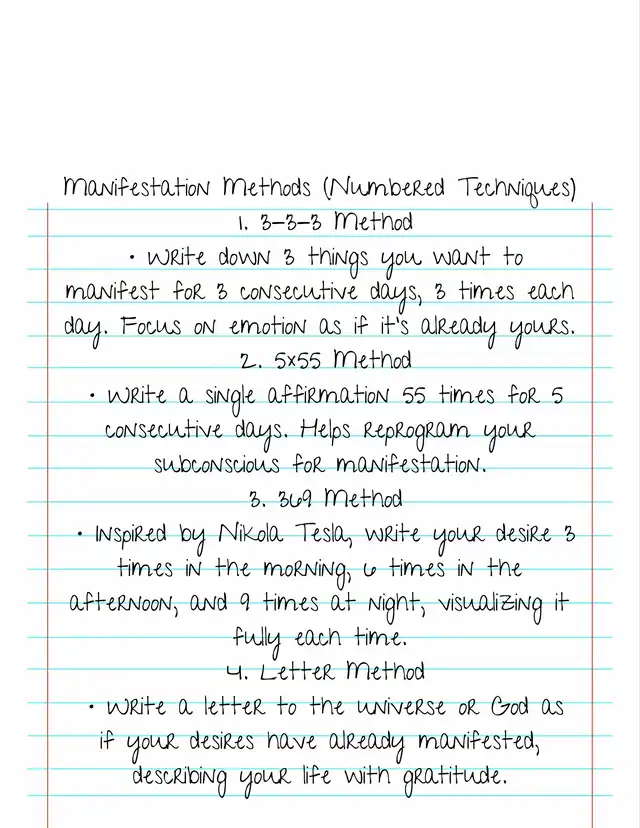 Manifestation Methods (Numbered Techniques)
1. 3-3-3 Method
• Write down 3 things you want to
manifest for 3 consecutive days, 3 times each
day. Focus on emotion as if it's already yours.
2. 5x55 Method
• Write a single affirmation 55 times for 5
consecutive days. Helps reprogram your
subconscious for manifestation.
3. 369 Method
• Inspired by Nikola Tesla, write your desire 3
times in the morning, 6 times in the
afternoon, and 9 times at night, visualizing it
fully each time.
4. Letter Method
• Write a letter to the universe or God as
if your desires have already manifested,
describing your life with gratitude.